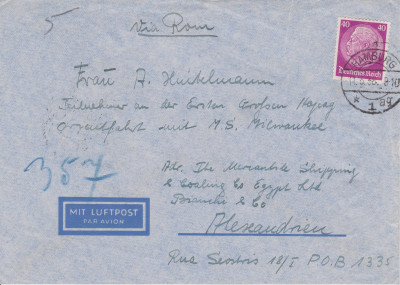 5
Via Rom
40 40
Deutsches Reich
HAMBURG
* 1 ag
Frau A. Hinkelmann
Teilnehmer an der Ersten Grossen Hapag
Orientfahrt mit M.S. Milwaukee
357
Adr. The Mercantile Shipping
& Coaling Co Egypt Ltd
& Co
MIT LUFTPOST
PAR AVION
Alexandrien
Rue Sesostris 18/I P.O.B 1335